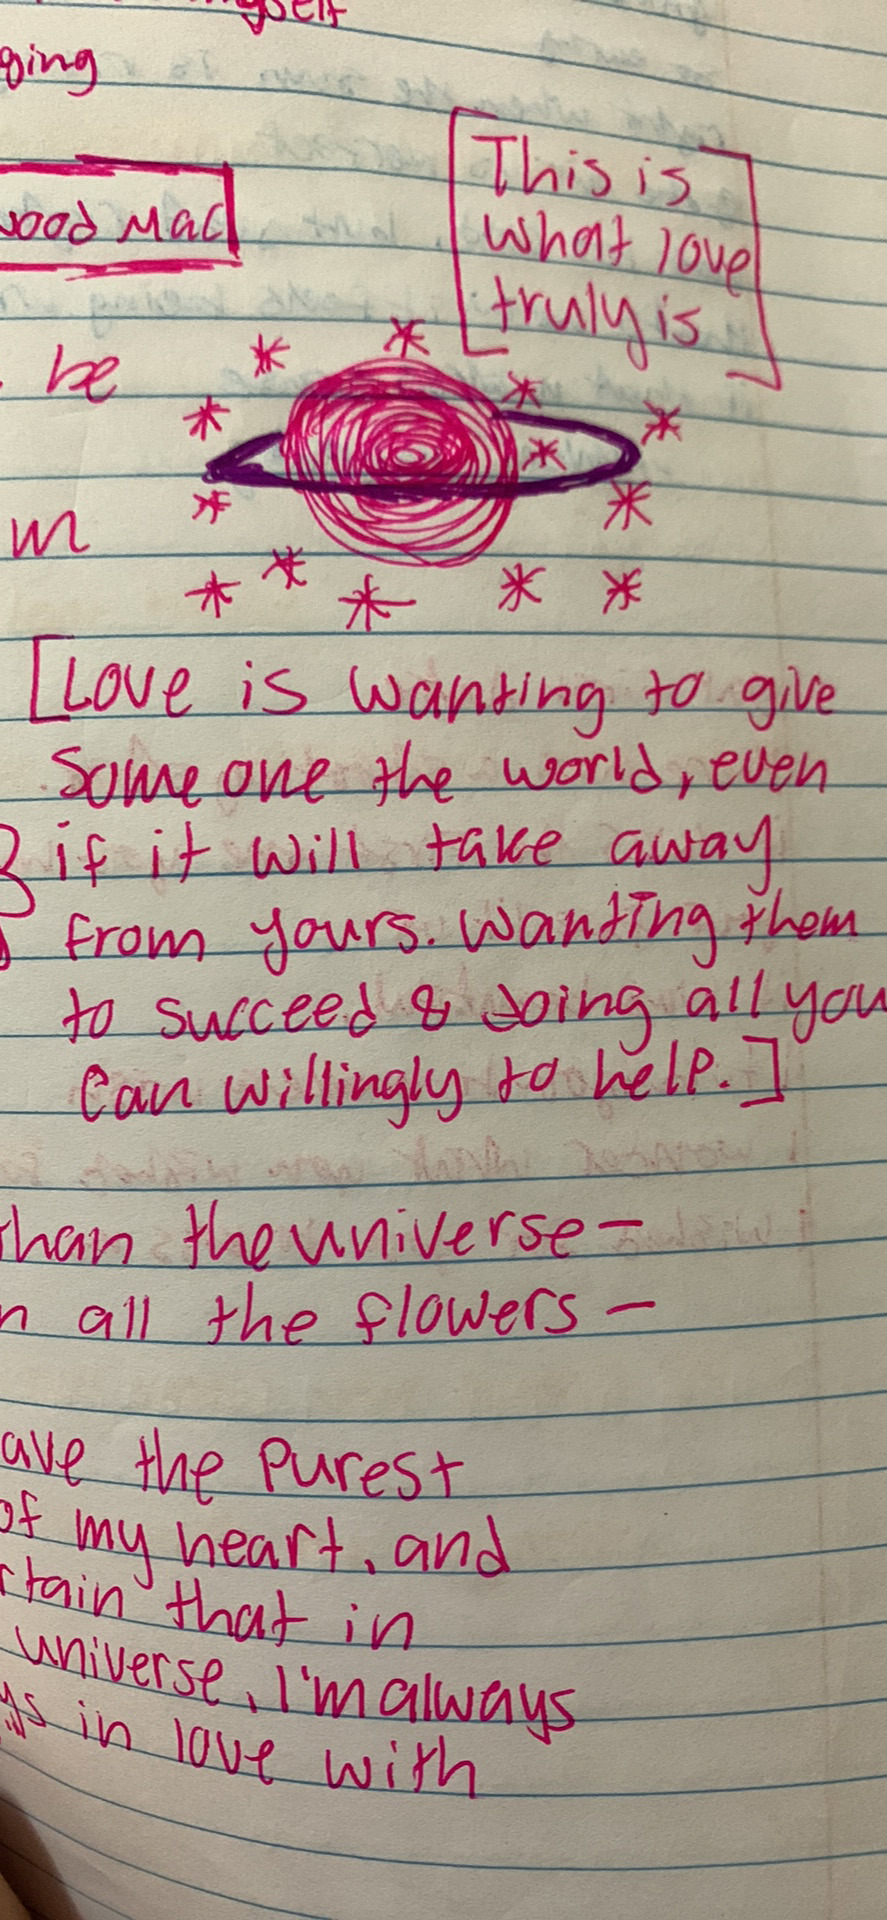 myself
This is
what love
truly is
be
m
[Love is wanting to give
someone the world, even
if it will take away
from yours. Wanting them
to succeed & doing all you
can willingly to help.]
than the universe—
all the flowers—
the purest
of my heart, and
that in
universe, I'm always
in love with